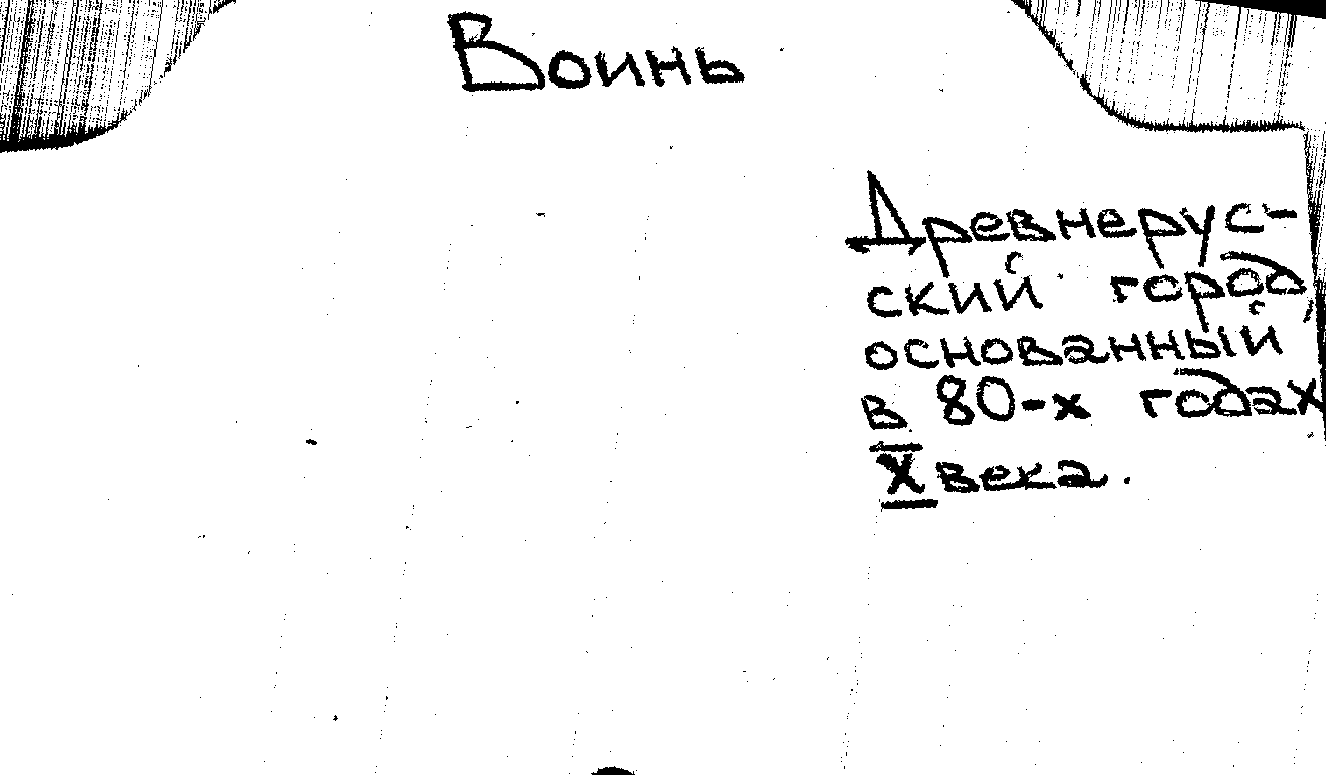 Воинь
Древнерус-
ский город,
основанный
в 80-х годах
X века.